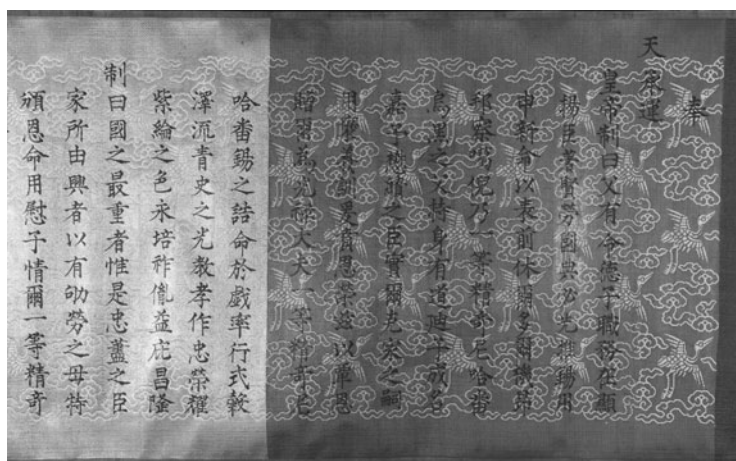 奉
天承運
皇帝制曰父有令德子職務在顯
揚臣著賢勞國典必先推錫用
申新命以表前休爾多爾機昂
邦察倪乃一等精奇尼哈番
烏黑之父持身有道迪子成名
嘉予懋績之臣實爾克家之嗣
用膺異數爰賁恩榮茲以覃恩
贈爾為光祿大夫一等精奇尼
哈番錫之誥命於戲率行式穀
澤流青史之光教孝作忠榮耀
紫綸之色永培祚胤益庇昌隆
制曰國之最重者惟是忠藎之臣
家所由興者以有劬勞之母特
頒恩命用慰子情爾一等精奇